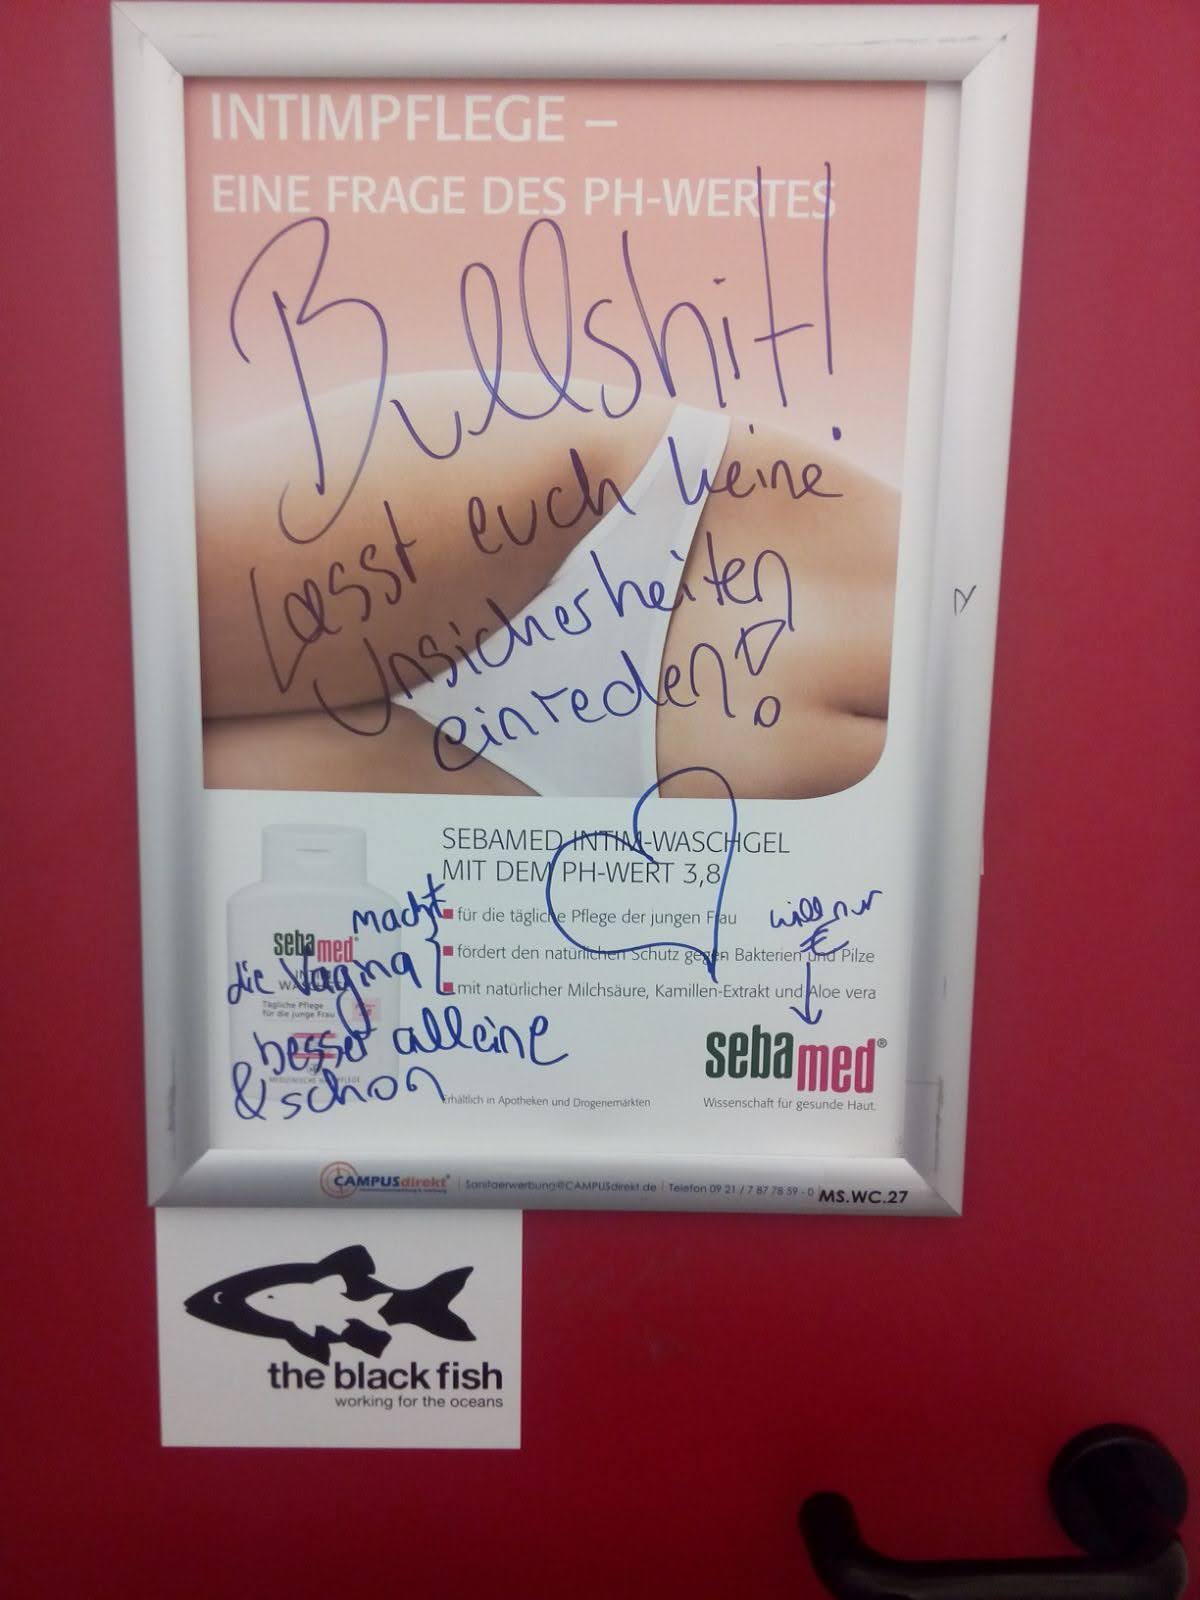 INTIMPFLEGE –
EINE FRAGE DES PH-WERTES
Bullshit!
Lasst euch keine
Unsicherheiten
einreden!
SEBAMED INTIM-WASCHGEL
MIT DEM PH-WERT 3,8
für die tägliche Pflege der jungen Frau
fördert den natürlichen Schutz gegen Bakterien und Pilze
mit natürlicher Milchsäure, Kamillen-Extrakt und Aloe vera
macht
die Vagina
besser alleine
& schon
will nur
€
sebamed
Tägliche Pflege
für die junge Frau
sebamed®
Wissenschaft für gesunde Haut.
Erhältlich in Apotheken und Drogenemärkten
CAMPUSdirekt Sanitaerwerbung@CAMPUSdirekt.de | Telefon 09 21 / 7 87 78 59 - 0 MS.WC.27
the black fish
working for the oceans